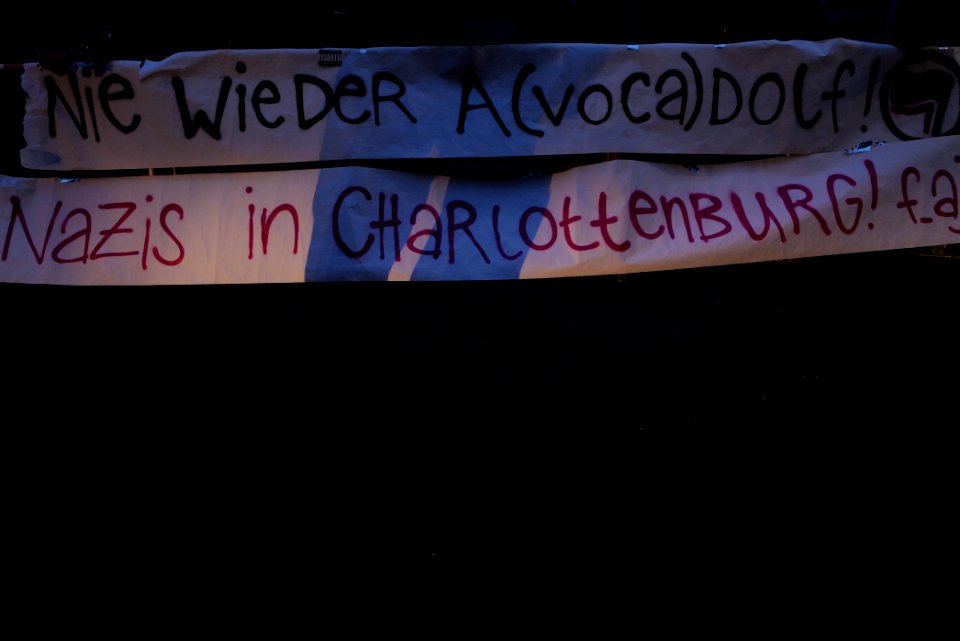 Nie Wieder A(voca)Dolf!
Nazis in CHARLottenBURG!